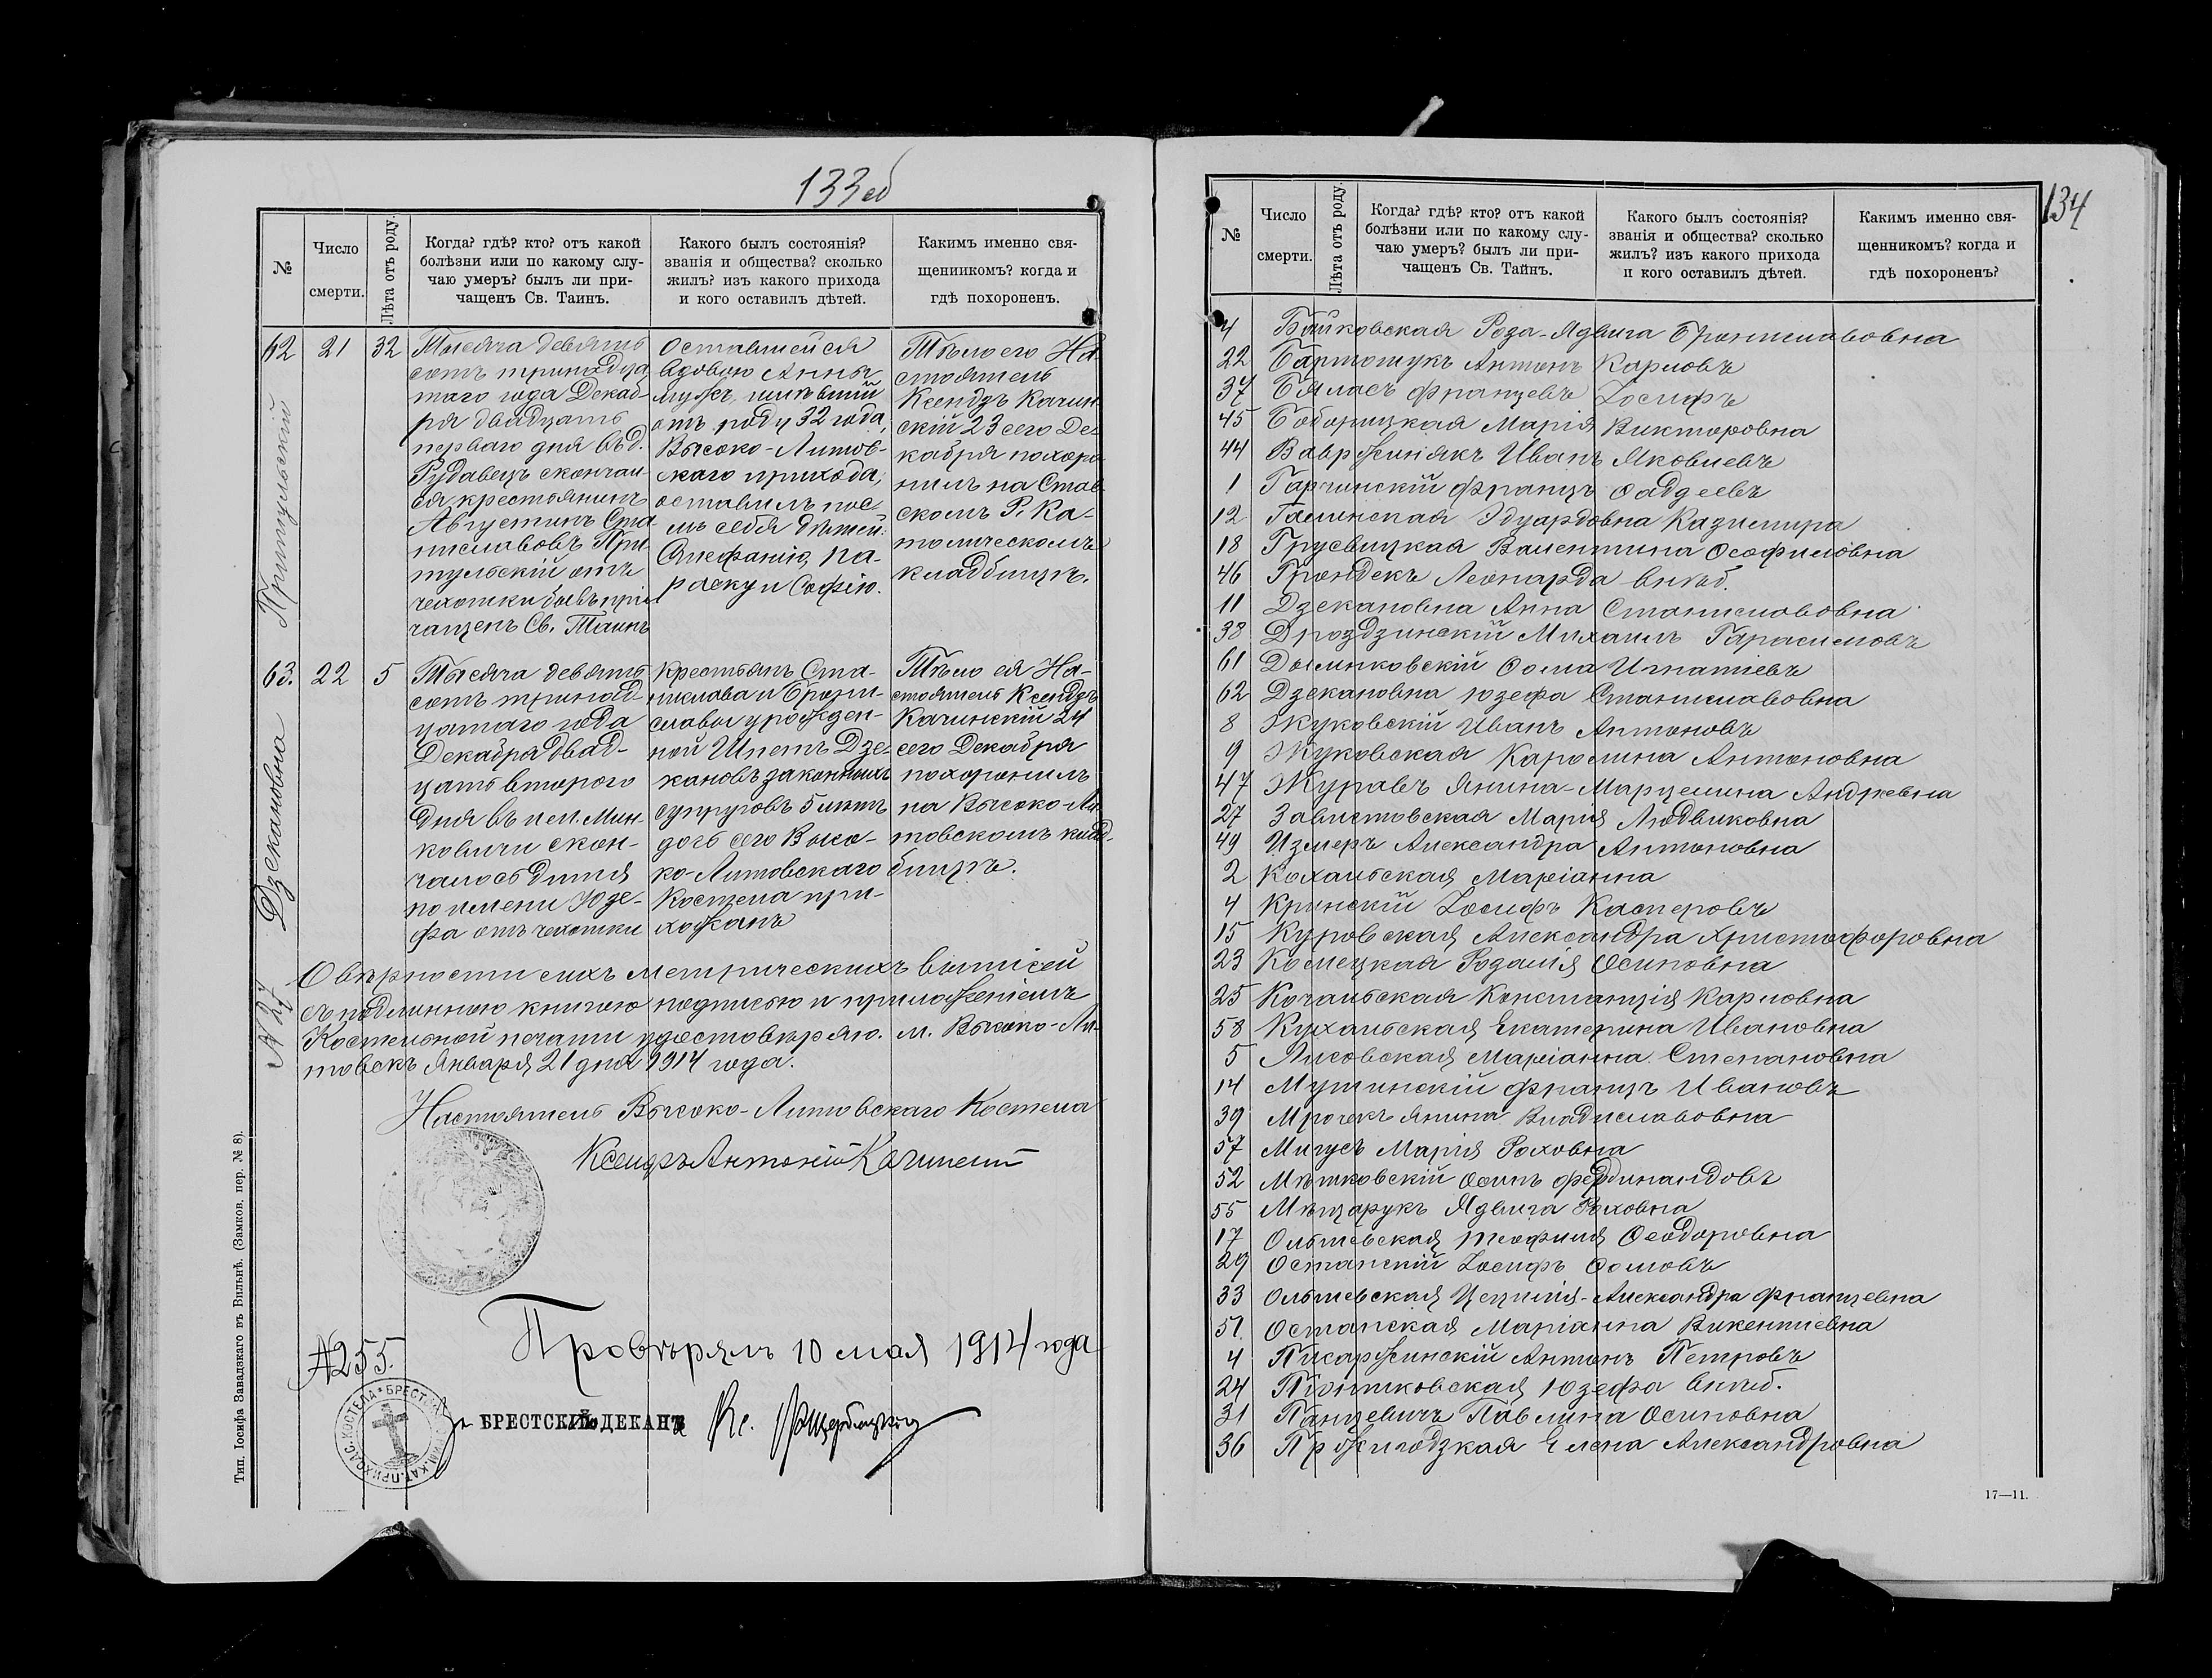 133об
№
Число смерти.
Лѣта отъ роду.
Когда? гдѣ? кто? отъ какой
болѣзни или по какому слу-
чаю умеръ? былъ ли при-
чащенъ Св. Таинъ.
Какого былъ состоянія?
званія и общества? сколько
жилъ? изъ какого прихода
и кого оставилъ дѣтей.
Какимъ именно свя-
щенникомъ? когда и
гдѣ похороненъ.
62
Притульскій
21
32
Тысяча девять
сотъ тринадца
таго года Декаб-
ря двадцать
перваго дня въ д.
Рудавецъ скончал-
ся крестьянинъ
Августинъ Ста
ниславовъ При-
тульскій отъ
чехотки бывъ прі
чащенъ Св. Таинъ
Оставшейся
вдовою Анны
мужъ, имѣвшій
отъ роду 32 года,
Высоко-Литов-
скаго прихода,
оставилъ пос-
лѣ себя дѣтей:
Стефанію, Па-
раску и Софію.
Тѣло его На-
стоятель
Ксендзъ Качин-
скій 23 сего Де-
кабря похоро
нилъ на Став-
скомъ Р. Ка-
толическомъ
кладбищѣ.
63.
Дзекановна
22
5
Тысяча девять
сотъ тринад-
цатаго года
Декабря двад-
цать второго
дня въ им. Мин-
ковичи скон-
чалось дитя
по имени Юзе-
фа отъ чехотки
Крестьянъ Ста-
нислава и Брони-
славы урожден-
ной Игнетъ Дзе-
кановъ законныхъ
супруговъ
дочь сего Высо-
ко-Литовскаго
Костела при-
хожанъ
Тѣло ея На-
стоятель Ксендзъ
Качинскій 24
сего Декабря
похоронилъ
на Высоко-Ли-
товскомъ клад-
бищѣ.
№ 27
О вѣрности сихъ метрическихъ выписей
съ подлинною книгою подписью и приложеніемъ
Костельной печати удостовѣряю. м. Высоко-Ли-
товскъ Января 21 дня 1914 года.
Настоятель Высоко-Литовскаго Костела
Ксендзъ Антоній Качинскій
Провѣрялъ 10 мая 1914 года
№ 255.
За БРЕСТСКАГО ДЕКАНА Кс.
Тип. Іосифа Завадзкаго въ Вильнѣ. (Замков. пер. № 8).
134
№
Число смерти.
Лѣта отъ роду.
Когда? гдѣ? кто? отъ какой
болѣзни или по какому слу-
чаю умеръ? былъ ли при-
чащенъ Св. Тайнъ.
Какого былъ состоянія?
званія и общества? сколько
жилъ? изъ какого прихода
и кого оставилъ дѣтей.
Какимъ именно свя-
щенникомъ? когда и
гдѣ похороненъ?
4 Байковская Роза-Ядвига Брониславовна
22 Бартошукъ Антонъ Карловъ
37 Бяласъ Францевъ Іосифъ
45 Боборицкая Марія Викторовна
44 Вавржинякъ Иванъ Яковлевъ
1 Гарчинскій Францъ Фаддеевъ
12 Галинская Эдуардовна Казимира
18 Грусвицкая Валентина Ѳеофиловна
46 Грондекъ Леонарда внѣб.
11 Дзекановна Анна Станиславовна
38 Дроздзинскій Михаилъ Гарасимовъ
61 Дылинковскій Ѳома Игнатіевъ
62 Дзекановна Юзефа Станиславовна
8 Жуковскій Иванъ Антоновъ
9 Жуковская Каролина Антоновна
47 Журавъ Янина-Марцелина Андреевна
27 Завистовская Марія Людвиковна
49 Измеръ Александра Антоновна
2 Кохальская Маріанна
4 Кринскій Іосифъ Касперовъ
15 Куровская Александра Христофоровна
23 Комецкая Розалія Осиповна
25 Кочальская Констанція Карловна
58 Кухальская Екатерина Ивановна
5 Лисовская Маріанна Степановна
14 Мушинскій Францъ Ивановъ
39 Мрочекъ Янина Владиславовна
57 Мигусъ Марія Роховна
52 Мѣшковскій Осипъ Фердинандовъ
55 Мѣщарукъ Ядвига Роховна
17 Ольшевская Теофиля Ѳеодоровна
29 Остапскій Іосифъ Ѳомовъ
33 Ольшевская Цецилія-Александра Францевна
51. Остапская Маріанна Викентіевна
4 Писаржинскій Антонъ Петровъ
24 Піонтковская Юзефа внѣб.
31 Панцевичъ Павлина Осиповна
36 Пржигодзкая Елена Александровна
17—11.